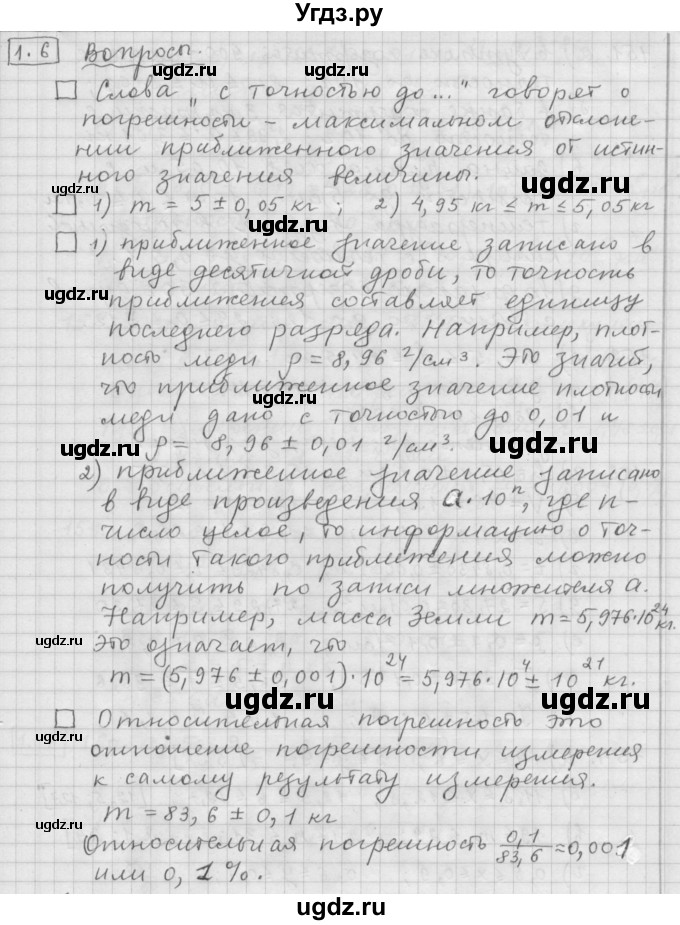 Угдз.ру
1.6 Вопросы.
□ Слова „с точностью до..." говорят о
погрешности – максимальном отклоне-
нии приближенного значения от истин-
ного значения величины.
□ 1) m = 5 ± 0,05 кг ; 2) 4,95 кг ≤ m ≤ 5,05 кг
□ 1) приближенное значение записано в
виде десятичной дроби, то точность
приближения составляет единицу
последнего разряда. Например, плот-
ность меди ρ = 8,96 г/см³. Это значит,
что приближенное значение плотности
меди дано с точностью до 0,01 и
ρ = 8,96 ± 0,01 г/см³.
2) приближенное значение записано
в виде произведения a·10ⁿ, где n-
число целое, то информацию о точ-
ности такого приближения можно
получить по записи множителя a.
Например, масса Земли m = 5,976·10²⁴ кг.
Это означает, что
m = (5,976 ± 0,001)·10²⁴ = 5,976·10⁴ ± 10²¹ кг.
□ Относительная погрешность это
отношение погрешности измерения
к самому результату измерения.
m = 83,6 ± 0,1 кг
Относительная погрешность 0,1/83,6 ≈ 0,001
или 0,1%.
ugdz.ru